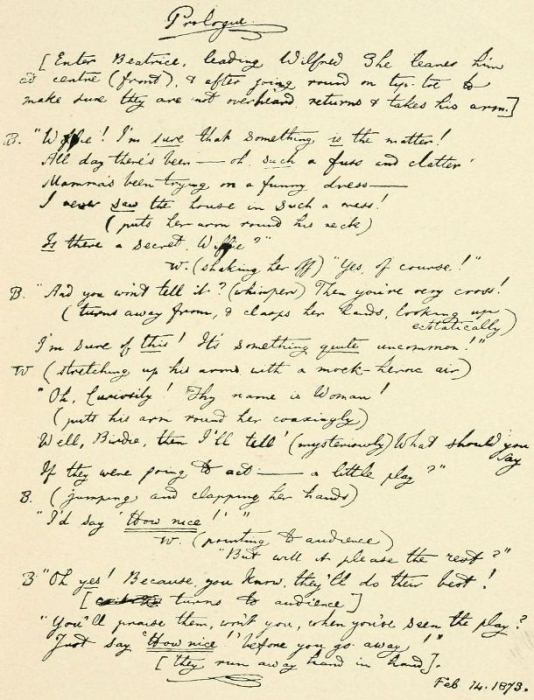 Prologue.
[Enter Beatrice, leading Wilfred. She leaves him
at centre (front), & after going round on tip-toe to
make sure they are not overheard, returns & takes his arm.]
B. "Wiffie! I'm sure that something is the matter!
All day there's been — oh such a fuss and clatter!
Mamma's been trying on a funny dress —
I never saw the house in such a mess!
(puts her arm round his neck)
Is there a secret, Wiffie?"
W. (shaking her off) "Yes, of course!"
B. "And you won't tell it? (whimpers) Then you're very cross!
(turns away from, & clasps her hands, looking up
ecstatically)
I'm sure of this! It's something quite uncommon!"
W (stretching up his arms with a mock-heroic air)
"Oh, Curiosity! Thy name is Woman!
(puts his arm round her coaxingly)
Well, Birdie, then I'll tell! (mysteriously) What should you
say
If they were going to act — a little play?"
B. (jumping and clapping her hands)
"I'd say 'How nice!'"
W. (pointing to audience)
"But will it please the rest?"
B "Oh yes! Because, you know, they'll do their best!
[turns to audience]
"You'll praise them, won't you, when you've seen the play?
Just say 'How nice!' before you go away!"
[they run away hand in hand].
Feb 14. 1873.